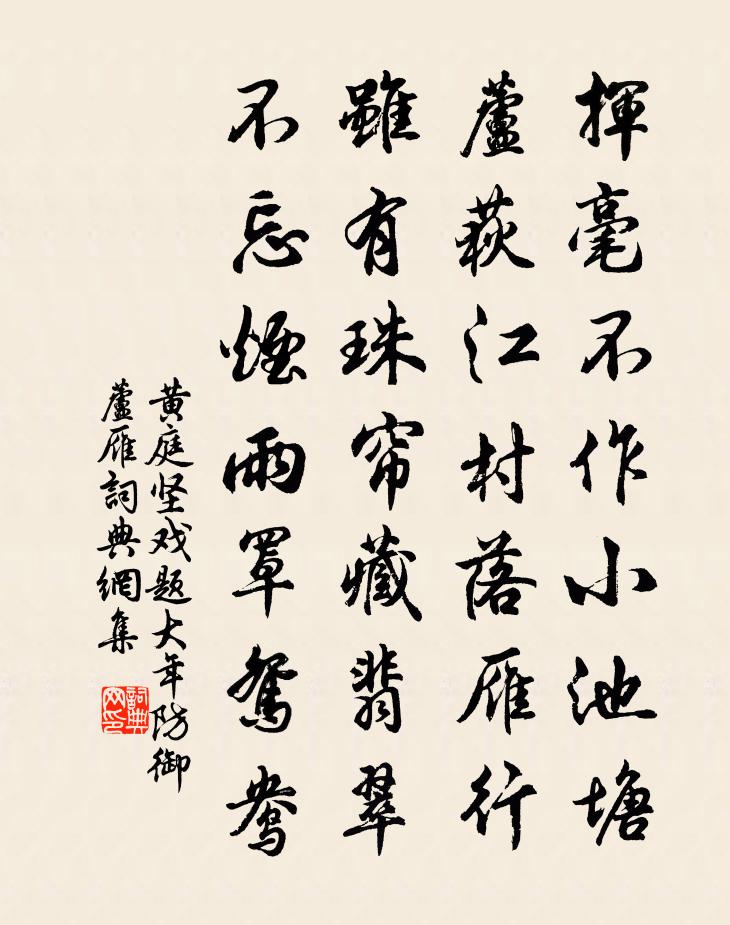 揮毫不作小池塘
蘆荻江村落雁行
雖有珠帘藏翡翠
不忘煙雨罩鴛鴦
黄庭坚戏题大年防御
蘆雁詞典網集
詞典
网印